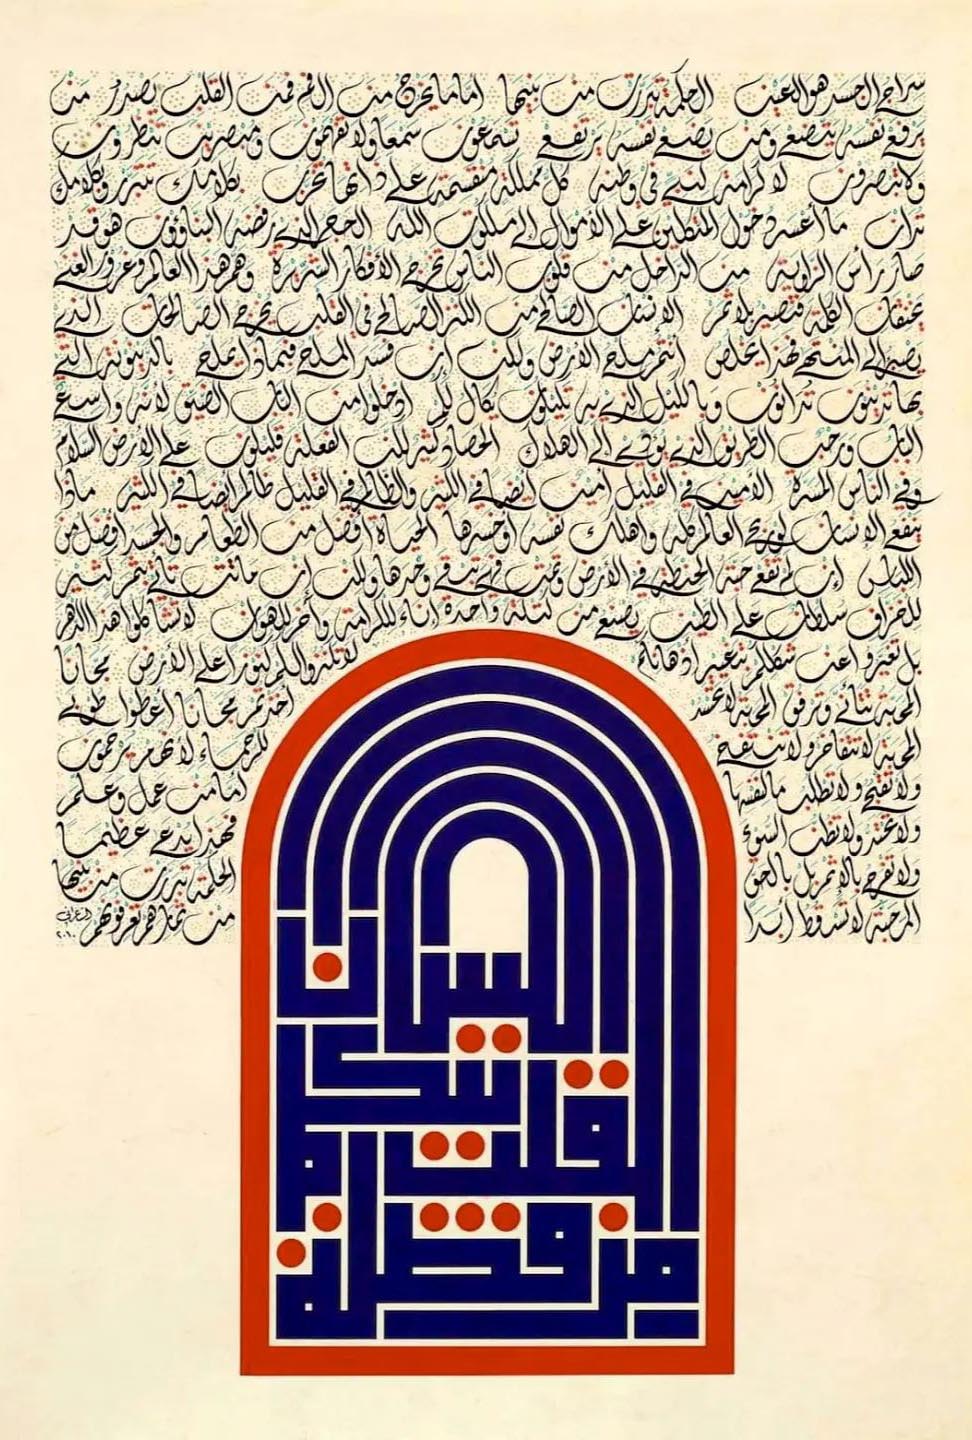 سراج الجسد هو العين الحكمة تبررت من بنيها أما ما يخرج من الفم فمن القلب يصدر من
يرفع نفسه يتضع ومن يضع نفسه يرتفع تسمعون سمعا ولا تفهمون ومبصرين تنظرون
ولا تبصرون لا كرامة لنبي في وطنه كل مملكة منقسمة على ذاتها تخرب بكلامك تبرر وبكلامك
تدان ما أعسر دخول المتكلين على الأموال إلى ملكوت الله الحجر الذي رفضه البناؤون هو قد
صار رأس الزاوية من الداخل من قلوب الناس تخرج الأفكار الشريرة وهم هذا العالم وغرور الغنى
يخنقان الكلمة فتصير بلا ثمر الإنسان الصالح من الكنز الصالح في القلب يخرج الصالحات الذي
يصبر إلى المنتهى فهذا يخلص أنتم ملح الأرض ولكن إن فسد الملح فبماذا يملح بالدينونة التي
بها تدينون تدانون وبالكيل الذي به تكيلون يكال لكم ادخلوا من الباب الضيق لأنه واسع
الباب ورحب الطريق الذي يؤدي إلى الهلاك الحصاد كثير لكن الفعلة قليلون على الأرض السلام
وفي الناس المسرة الأمين في القليل أمين أيضا في الكثير والظالم في القليل ظالم أيضا في الكثير ماذا
ينفع الإنسان لو ربح العالم كله وأهلك نفسه أو خسرها الحياة أفضل من الطعام والجسد أفضل من
اللباس إن لم تقع حبة الحنطة في الأرض وتمت فهي تبقى وحدها ولكن إن ماتت تأتي بثمر كثير
للخزاف سلطان على الطين يصنع من كتلة واحدة إناء للكرامة وآخر للهوان لا تشاكلوا هذا الدهر
بل تغيروا عن شكلكم بتغيير أذهانكم لا تكنزوا لكم كنوزا على الأرض مجانا
المحبة تتأنى وترفق المحبة لا تحسد أخذتم مجانا أعطوا طوبى
المحبة لا تتفاخر ولا تنتفخ للرحماء لأنهم يرحمون
ولا تقبح ولا تطلب ما لنفسها أما من عمل وعلم
ولا تحتد ولا تظن السوء فهذا يدعى عظيما
ولا تفرح بالإثم بل بالحق الحكمة تبررت من بنيها
المحبة لا تسقط أبدا من ثمارهم تعرفونهم
من فضلة القلب يتكلم اللسان